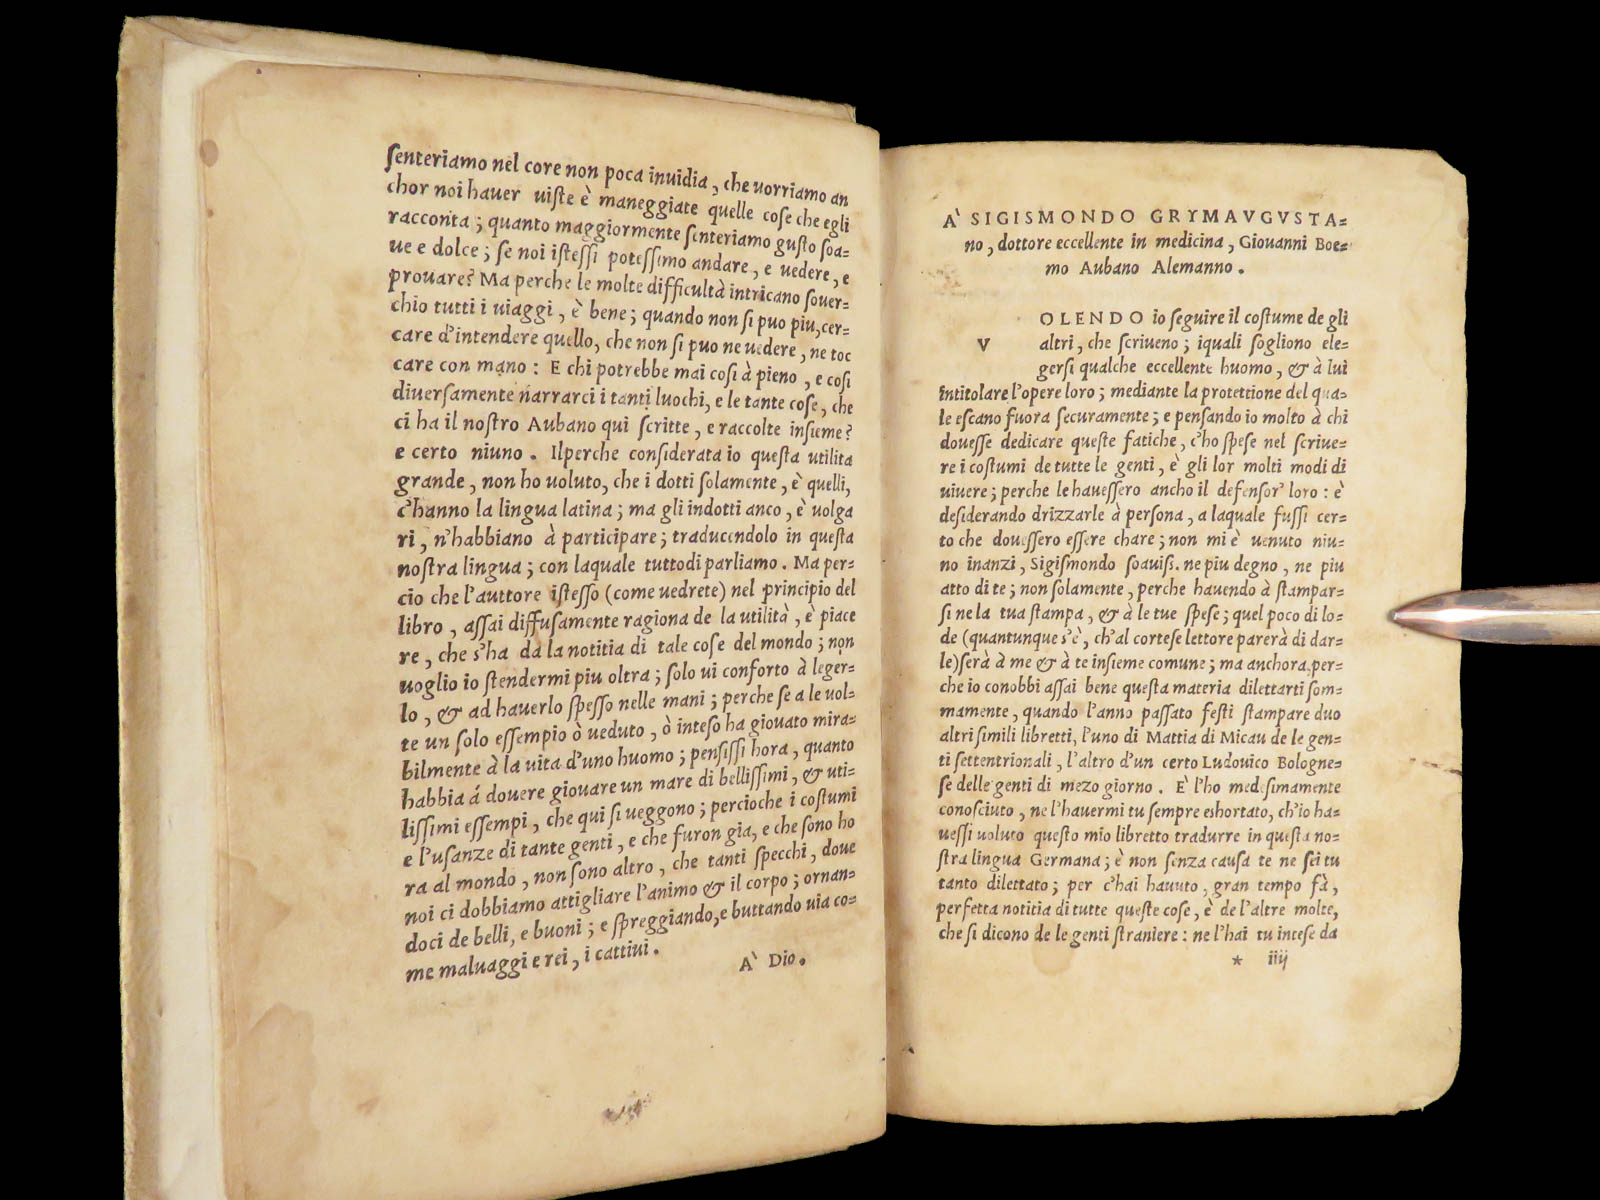 ſenteriamo nel core non poca inuidia, che uorriamo an
chor noi hauer uiſte è maneggiate quelle coſe che egli
racconta; quanto maggiormente ſenteriamo guſto ſoa-
ue e dolce; ſe noi iſteſſi poteſſimo andare, e uedere, e
prouare? Ma perche le molte difficultà intricano ſouer-
chio tutti i uiaggi, è bene; quando non ſi puo piu, cer-
care d'intendere quello, che non ſi puo ne uedere, ne toc
care con mano: E chi potrebbe mai coſi à pieno, e coſi
diuerſamente narrarci i tanti luochi, e le tante coſe, che
ci ha il noſtro Aubano qui ſcritte, e raccolte inſieme?
e certo niuno. Ilperche conſiderata io queſta utilita
grande, non ho uoluto, che i dotti ſolamente, è quelli,
c'hanno la lingua latina; ma gli indotti anco, è uolga
ri, n'habbiano à participare; traducendolo in queſta
noſtra lingua; con laquale tuttodi parliamo. Ma per-
cio che l'auttore iſteſſo (come uedrete) nel principio del
libro, aſſai diffuſamente ragiona de la utilità, è piace
re, che s'ha da la notitia di tale coſe del mondo; non
uoglio io ſtendermi piu oltra; ſolo ui conforto à leger-
lo, & ad hauerlo ſpeſſo nelle mani; perche ſe a le uol-
te un ſolo eſſempio ò ueduto, ò inteſo ha giouato mira-
bilmente à la uita d'uno huomo; penſiſi hora, quanto
habbia á douere giouare un mare di belliſſimi, & uti-
liſſimi eſſempi, che qui ſi ueggono; percioche i coſtumi
e l'uſanze di tante genti, e che furon gia, e che ſono ho
ra al mondo, non ſono altro, che tanti ſpecchi, doue
noi ci dobbiamo attigliare l'animo & il corpo; ornan-
doci de belli, e buoni; e ſpreggiando, e buttando uia co-
me maluaggi e rei, i cattiui.
A' Dio.
A' SIGISMONDO GRYMAVGVSTA-
no, dottore eccellente in medicina, Giouanni Boe-
mo Aubano Alemanno.
V OLENDO io ſeguire il coſtume de gli
altri, che ſcriueno; iquali ſogliono ele-
gerſi qualche eccellente huomo, & à lui
intitolare l'opere loro; mediante la protettione del qua-
le eſcano fuora ſecuramente; e penſando io molto à chi
doueſſe dedicare queſte fatiche, c'ho ſpeſe nel ſcriue-
re i coſtumi de tutte le genti, è gli lor molti modi di
uiuere; perche le haueſſero ancho il defenſor' loro: è
deſiderando drizzarle à perſona, a laquale fuſſi cer-
to che doueſſero eſſere chare; non mi è uenuto niu-
no inanzi, Sigiſmondo ſoauiſs. ne piu degno, ne piu
atto di te; non ſolamente, perche hauendo à ſtampar-
ſi ne la tua ſtampa, & à le tue ſpeſe; quel poco di lo-
de (quantunque s'è, ch'al corteſe lettore parerà di dar-
le) ſerà à me & à te inſieme comune; ma anchora, per-
che io conobbi aſſai bene queſta materia dilettarti ſom-
mamente, quando l'anno paſſato feſti ſtampare duo
altri ſimili libretti, l'uno di Mattia di Micau de le gen-
ti ſettentrionali, l'altro d'un certo Ludouico Bologne-
ſe delle genti di mezo giorno. E l'ho medeſimamente
conoſciuto, ne l'hauermi tu ſempre eshortato, ch'io ha-
ueſſi uoluto queſto mio libretto tradurre in queſta no-
ſtra lingua Germana; è non ſenza cauſa te ne ſei tu
tanto dilettato; per c'hai hauuto, gran tempo fà,
perfetta notitia di tutte queſte coſe, è de l'altre molte,
che ſi dicono de le genti ſtraniere: ne l'hai tu inteſe da
* iiij